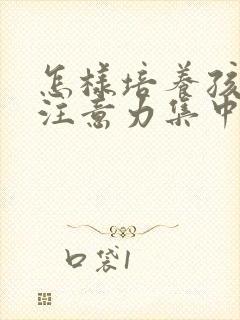 怎样培养孩
注意力集中
口袋1